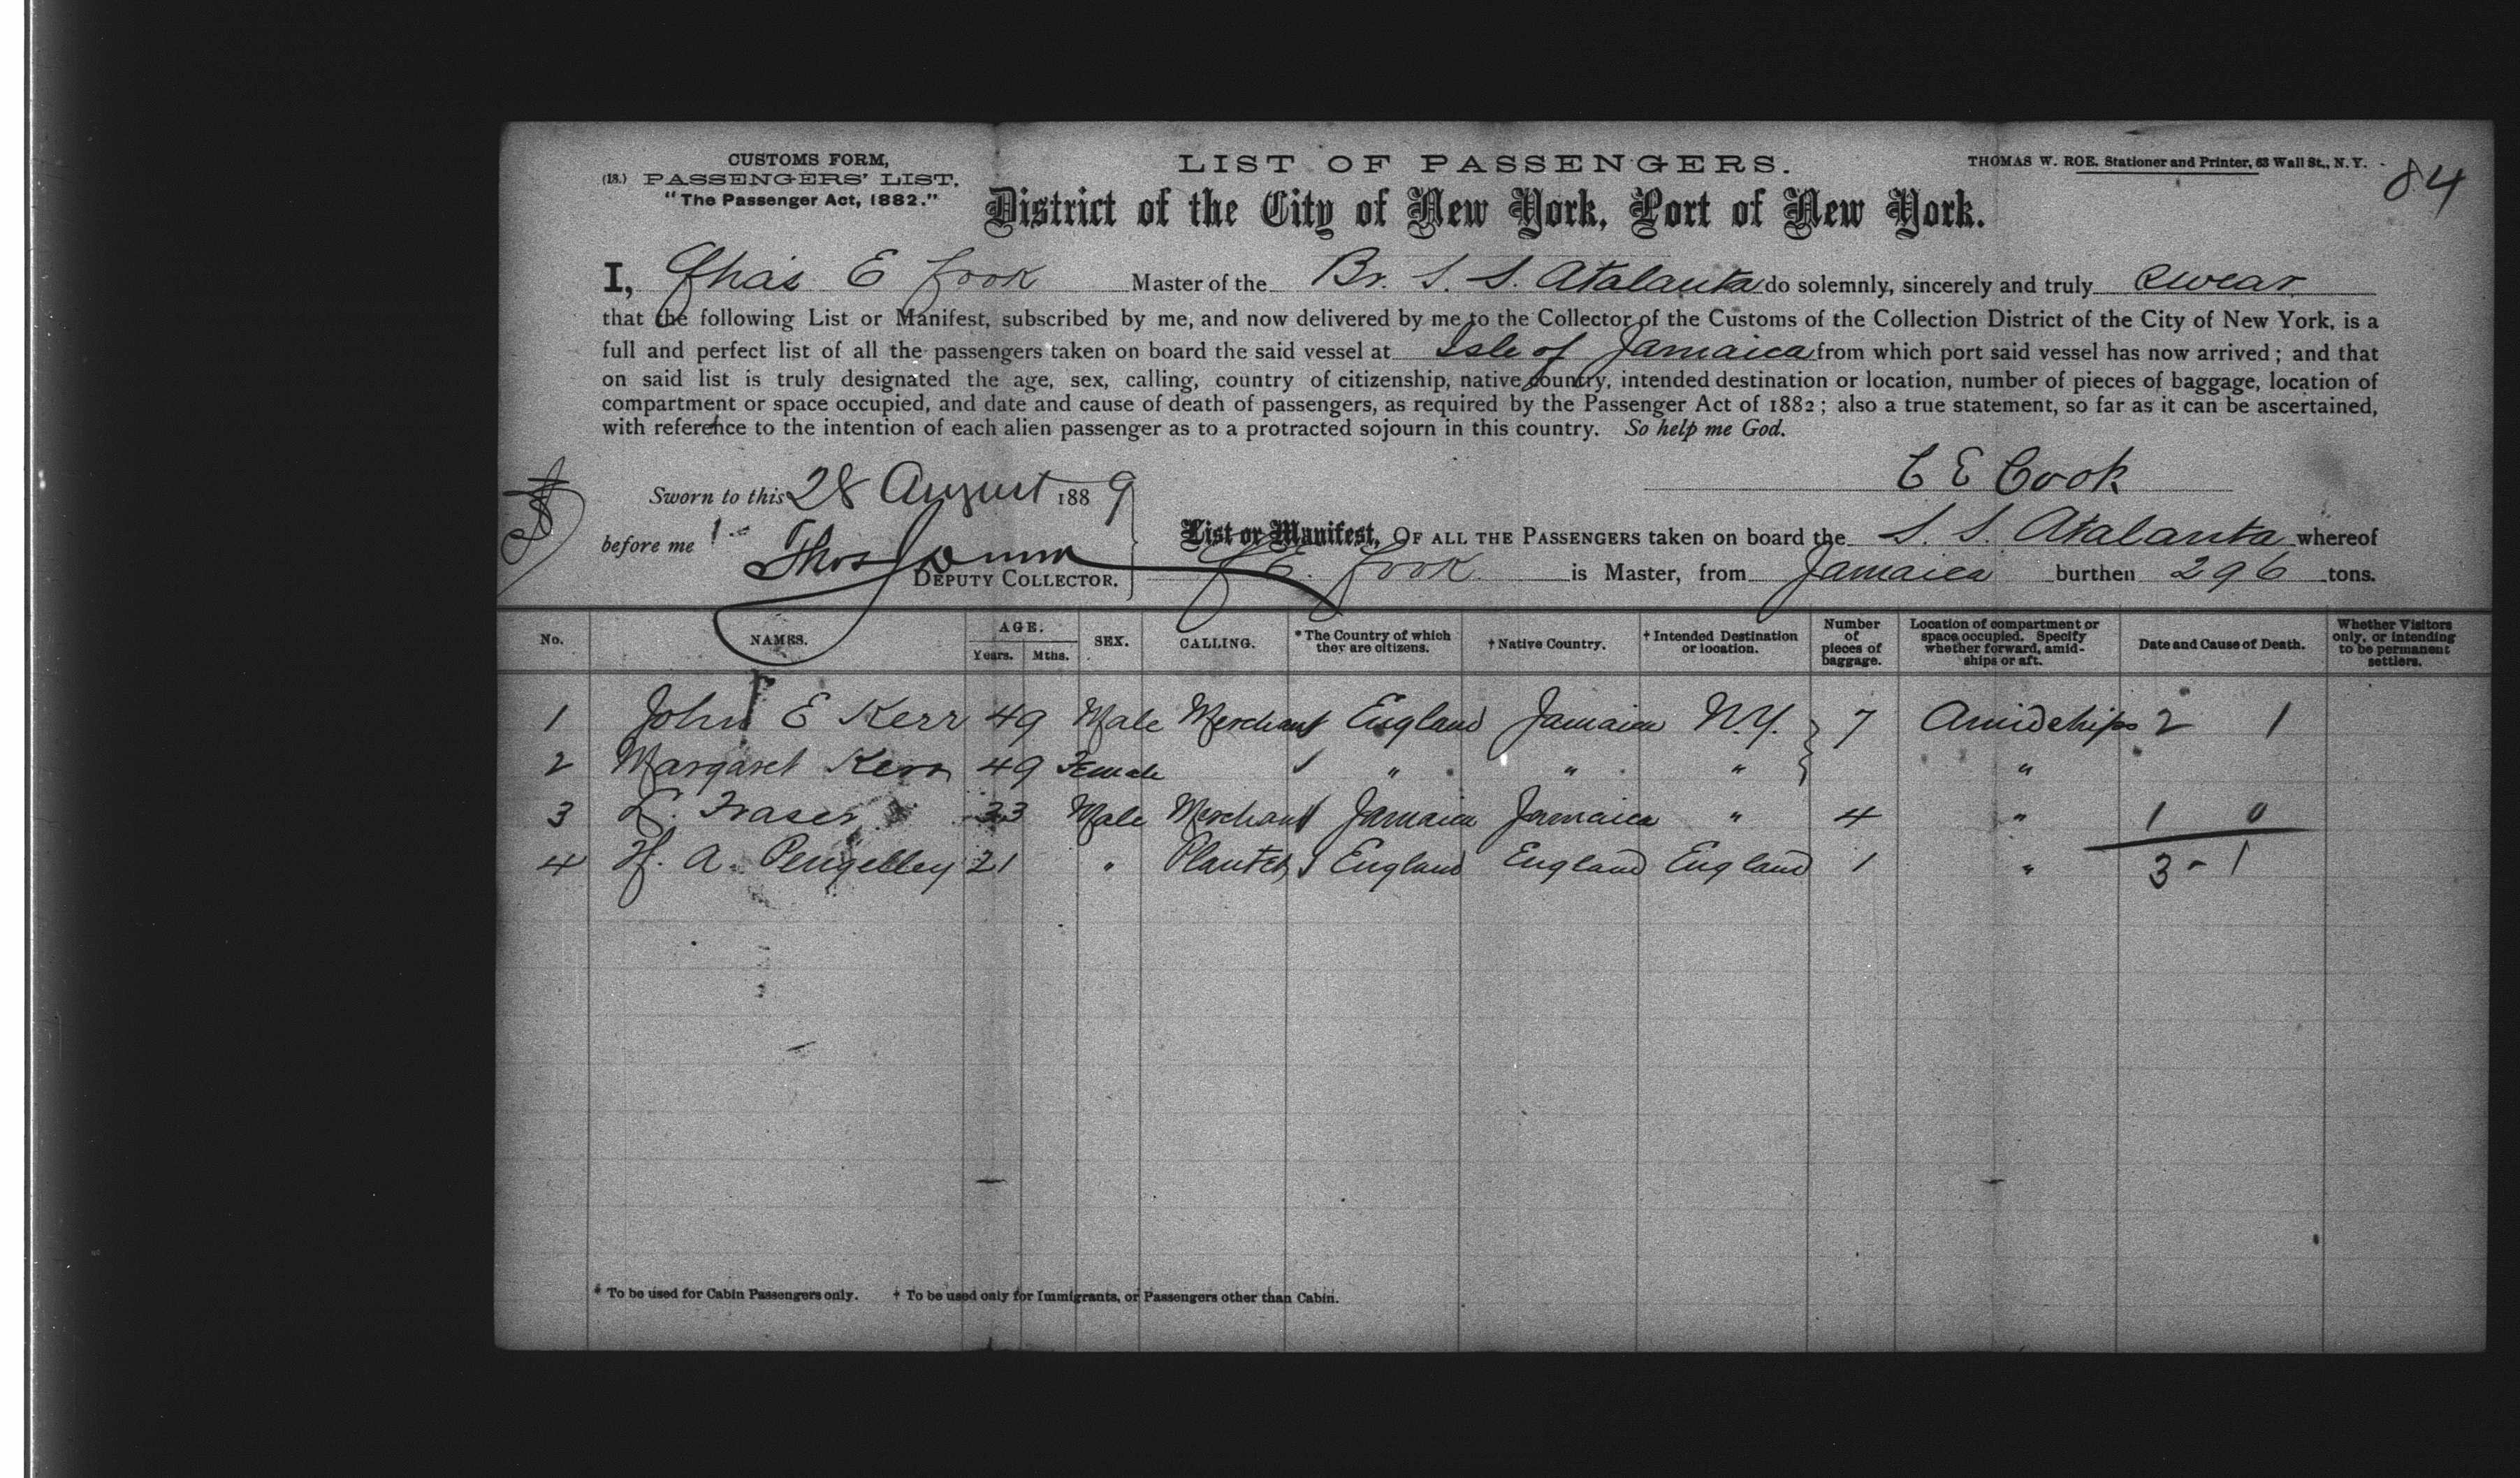 CUSTOMS FORM,
(18.) PASSENGERS' LIST.
"The Passenger Act, 1882."
LIST OF PASSENGERS.
THOMAS W. ROE, Stationer and Printer, 63 Wall St., N. Y.
84
District of the City of New York, Port of New York.
I, Chas E Cook Master of the Br. S. S. Atalanta do solemnly, sincerely and truly swear
that the following List or Manifest, subscribed by me, and now delivered by me to the Collector of the Customs of the Collection District of the City of New York, is a
full and perfect list of all the passengers taken on board the said vessel at Isle of Jamaica from which port said vessel has now arrived; and that
on said list is truly designated the age, sex, calling, country of citizenship, native country, intended destination or location, number of pieces of baggage, location of
compartment or space occupied, and date and cause of death of passengers, as required by the Passenger Act of 1882; also a true statement, so far as it can be ascertained,
with reference to the intention of each alien passenger as to a protracted sojourn in this country. So help me God.
C E Cook
Sworn to this 28 August 1889
before me Thos
DEPUTY COLLECTOR.
List or Manifest, OF ALL THE PASSENGERS taken on board the S. S. Atalanta whereof
C E. Cook is Master, from Jamaica burthen 296 tons.
No. NAMES. AGE. Years. Mths. SEX. CALLING. *The Country of which they are citizens. †Native Country. †Intended Destination or location. Number of pieces of baggage. Location of compartment or space occupied. Specify whether forward, amid-ships or aft. Date and Cause of Death. Whether Visitors only, or intending to be permanent settlers.
1 John E Kerr 49 Male Merchant England Jamaica N.Y. 7 Amidships 2 1
2 Margaret Kerr 49 Female " " " "
3 L. Fraser 33 Male Merchant Jamaica Jamaica " 4 " 1 0
4 H. A. Pengelley 21 " Planter England England England 1 " 3 - 1
* To be used for Cabin Passengers only. † To be used only for Immigrants, or Passengers other than Cabin.